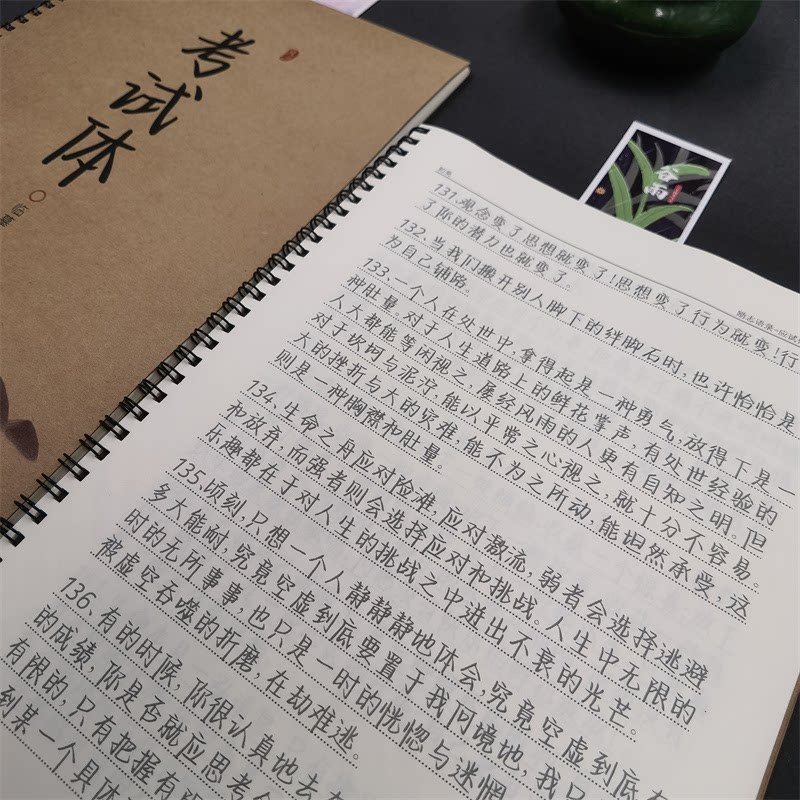 考试体
临摹
谷雨
励志语录-应试
131.观念变了思想就变了!思想变了行为就变!行
了你的潜力也就变了。
132.当我们搬开别人脚下的绊脚石时,也许恰恰是
为自己铺路。
133.一个人在处世中,拿得起是一种勇气,放得下是一
种肚量。对于人生道路上的鲜花掌声,有处世经验的
人大都能等闲视之,屡经风雨的人更有自知之明。但
对于坎坷与泥泞,能以平常之心视之,就十分不容易。
大的挫折与大的灾难,能不为之所动,能坦然承受,这
则是一种胸襟和肚量。
134.生命之舟应对险滩,应对激流,弱者会选择逃避
和放弃,而强者则会选择应对和挑战。人生中无限的
乐趣都在于对人生的挑战之中迸出不衰的光芒。
135.顷刻,只想一个人静静静地体会,究竟空虚到底有
多大能耐,究竟空虚到底要置于我何境地,我只
时的无所事事,也只是一时的恍惚与迷惘
被虚空吞噬的折磨,在劫难逃。
136.有的时候,你很认真地去
的成绩,你是否就应思考
有限的,只有把握有限
到某一个具体